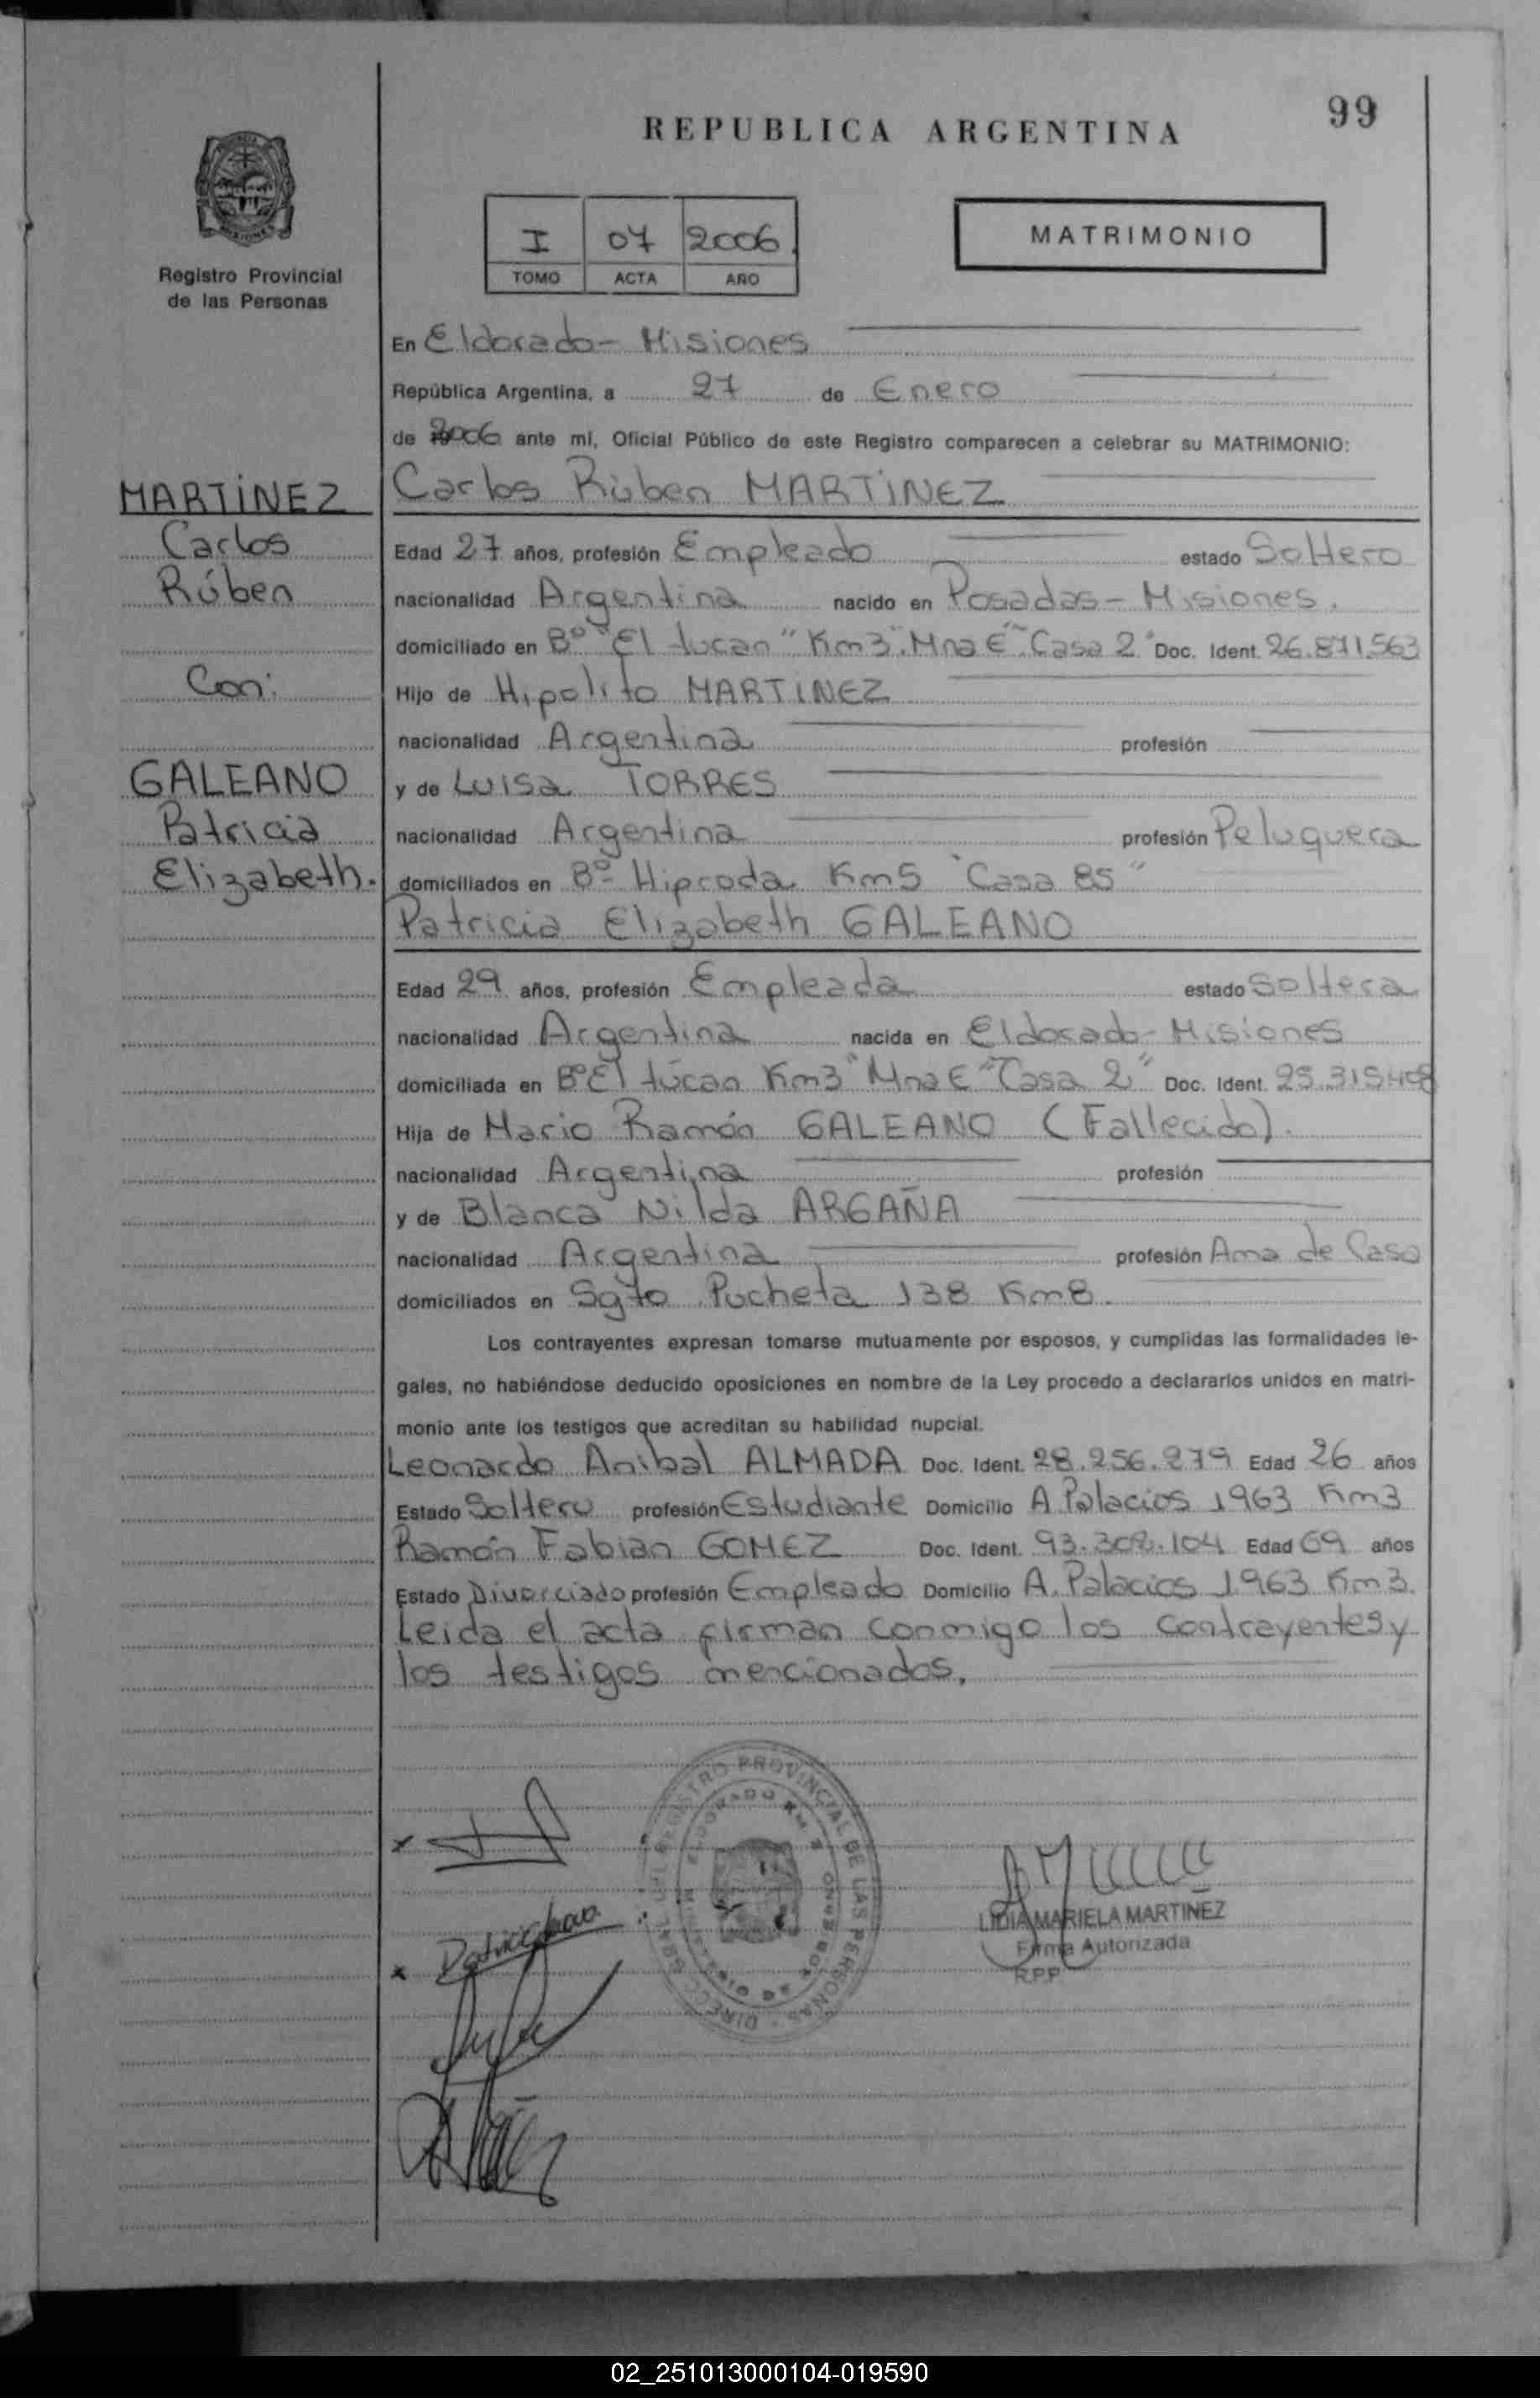 99
REPUBLICA ARGENTINA
Registro Provincial
de las Personas
I 07 2006
TOMO ACTA AÑO
MATRIMONIO
En Eldorado - Misiones
República Argentina, a 27 de Enero
de 2006 ante mí, Oficial Público de este Registro comparecen a celebrar su MATRIMONIO:
MARTINEZ
Carlos
Rúben
Con:
GALEANO
Patricia
Elizabeth.
Carlos Rúben MARTINEZ
Edad 27 años, profesión Empleado estado Soltero
nacionalidad Argentina nacido en Posadas - Misiones.
domiciliado en Bº "El tucan" Km3 "Mna E" "Casa 2" Doc. Ident. 26.871.563
Hijo de Hipolito MARTINEZ
nacionalidad Argentina profesión
y de Luisa TORRES
nacionalidad Argentina profesión Peluquera
domiciliados en Bº Hiproda Km5 "Casa 85"
Patricia Elizabeth GALEANO
Edad 29 años, profesión Empleada estado Soltera
nacionalidad Argentina nacida en Eldorado - Misiones
domiciliada en Bº El túcan Km3 "Mna E" "Casa 2" Doc. Ident. 25.315.408
Hija de Mario Ramón GALEANO (Fallecido).
nacionalidad Argentina profesión
y de Blanca Nilda ARGAÑA
nacionalidad Argentina profesión Ama de Casa
domiciliados en Sgto Pucheta 138 Km8.
Los contrayentes expresan tomarse mutuamente por esposos, y cumplidas las formalidades le-
gales, no habiéndose deducido oposiciones en nombre de la Ley procedo a declararlos unidos en matri-
monio ante los testigos que acreditan su habilidad nupcial.
Leonardo Anibal ALMADA Doc. Ident. 28.256.279 Edad 26 años
Estado Soltero profesión Estudiante Domicilio A Palacios 1963 Km3
Ramón Fabian GOMEZ Doc. Ident. 93.308.104 Edad 69 años
Estado Divorciado profesión Empleado Domicilio A. Palacios 1963 Km3.
Leida el acta firman conmigo los contrayentes y
los testigos mencionados.
REGISTRO PROVINCIAL DE LAS PERSONAS
LIDIA MARIELA MARTINEZ
Firma Autorizada
R.P.P
02_251013000104-019590